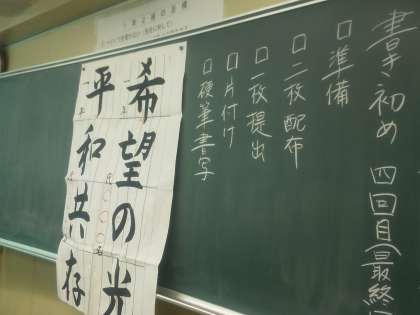 書き初め 四回目(最終
□準備
□二枚配布
□一枚提出
□片付け
□硬筆書写
希望の光
平和共存